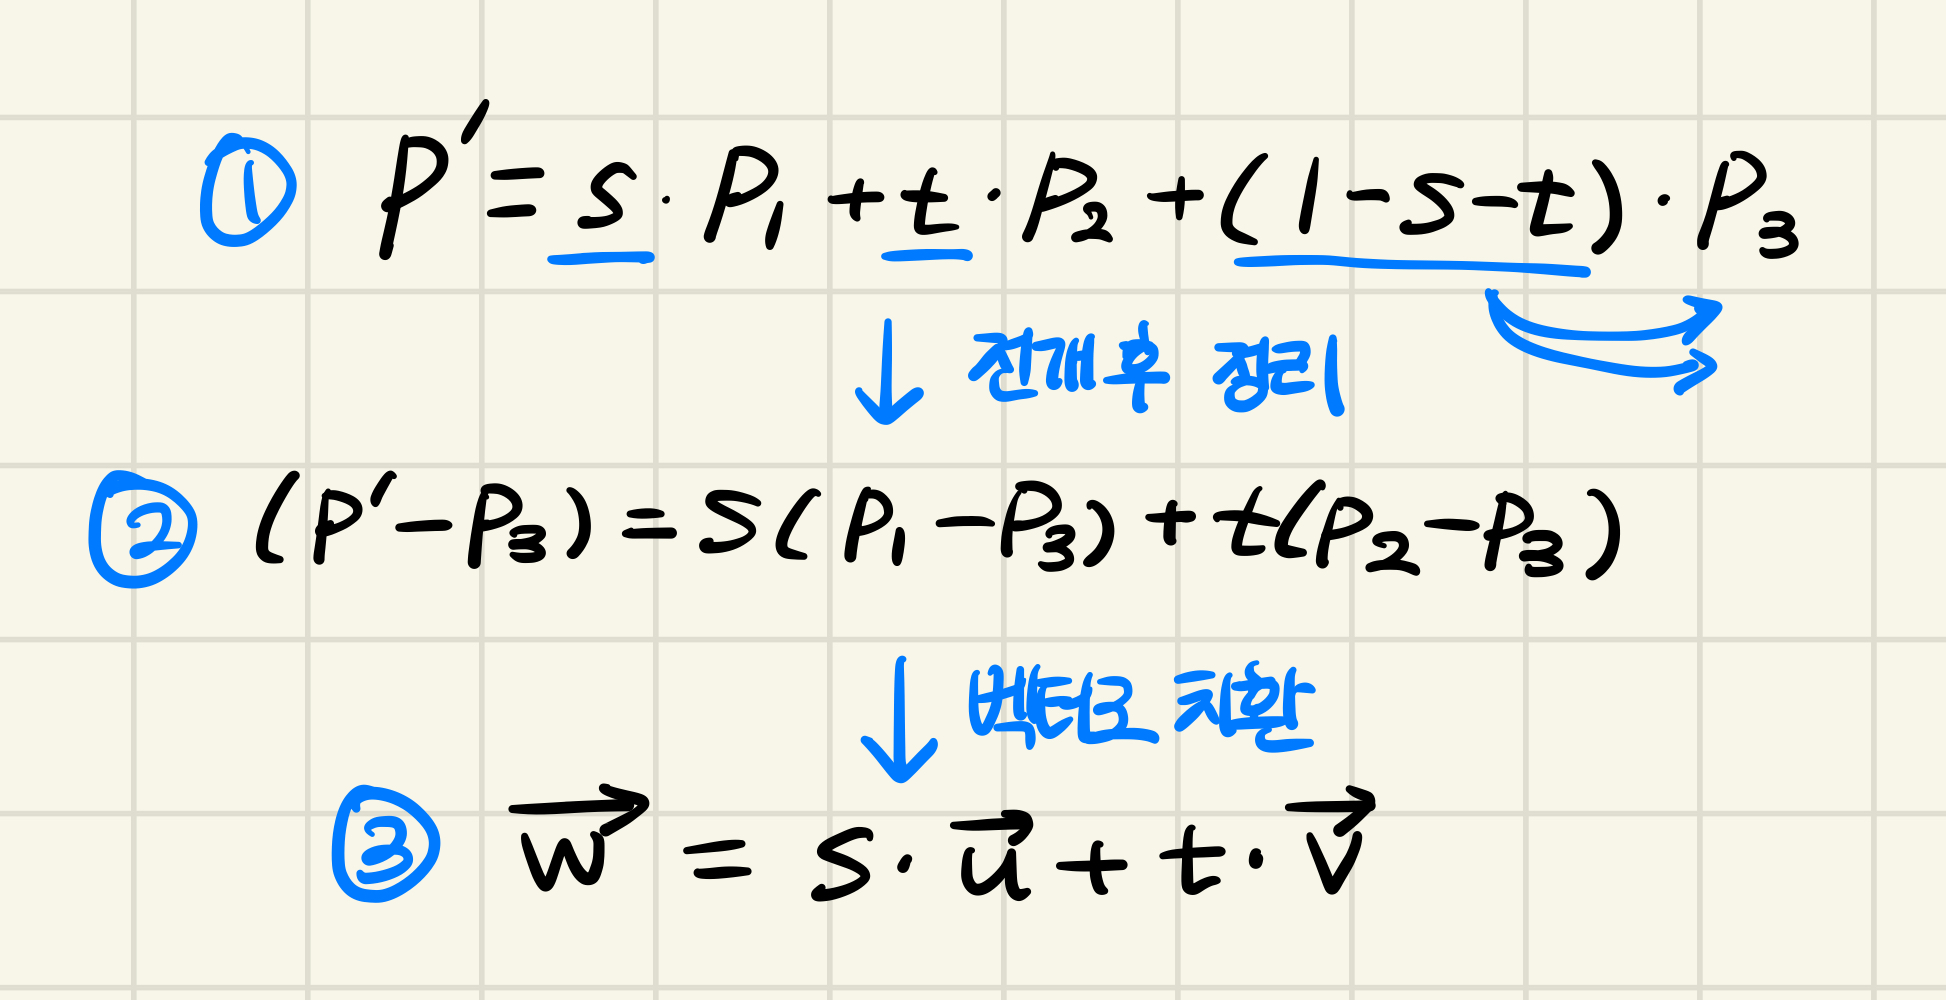 ① P' = s · P₁ + t · P₂ + (1-s-t) · P₃
↓ 전개 후 정리
② (P'-P₃) = s(P₁-P₃) + t(P₂-P₃)
↓ 벡터로 치환
③ w⃗ = s · u⃗ + t · v⃗